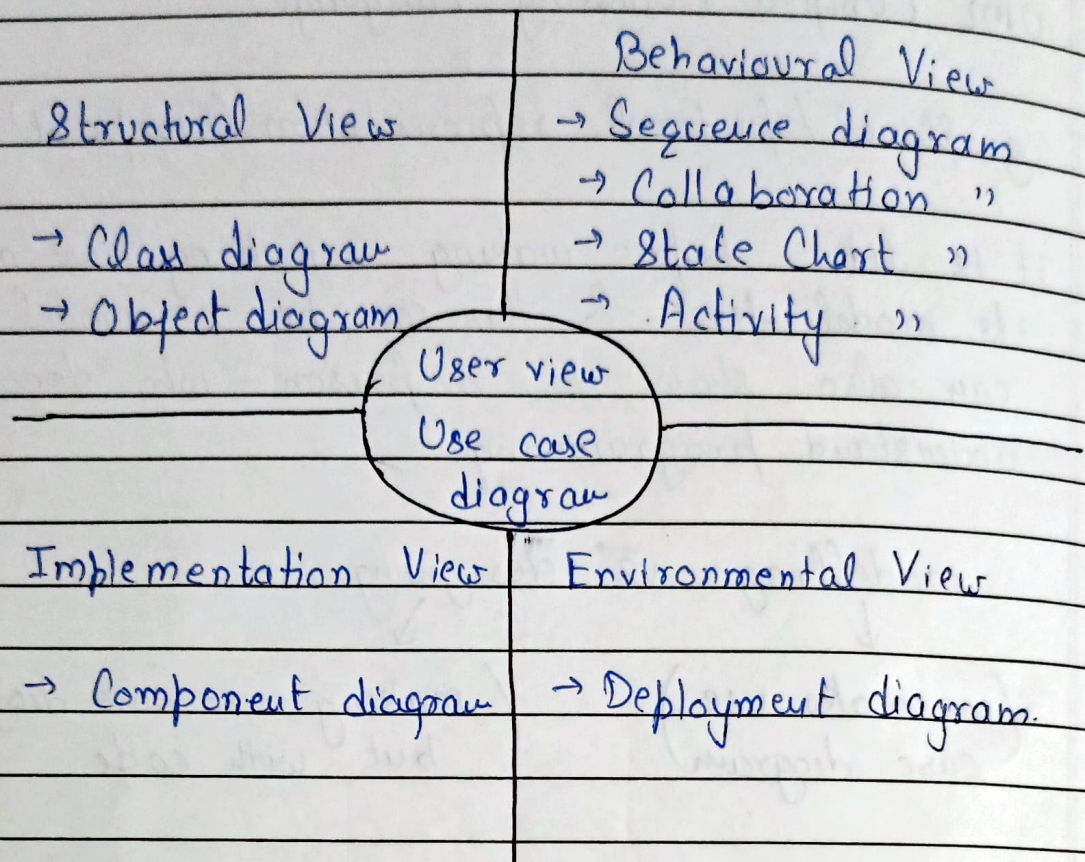 Structural View
→ Class diagram
→ Object diagram
Behavioural View
→ Sequence diagram
→ Collaboration "
→ State Chart "
→ Activity "
User view
Use case
diagram
Implementation View
→ Component diagram
Environmental View
→ Deployment diagram.